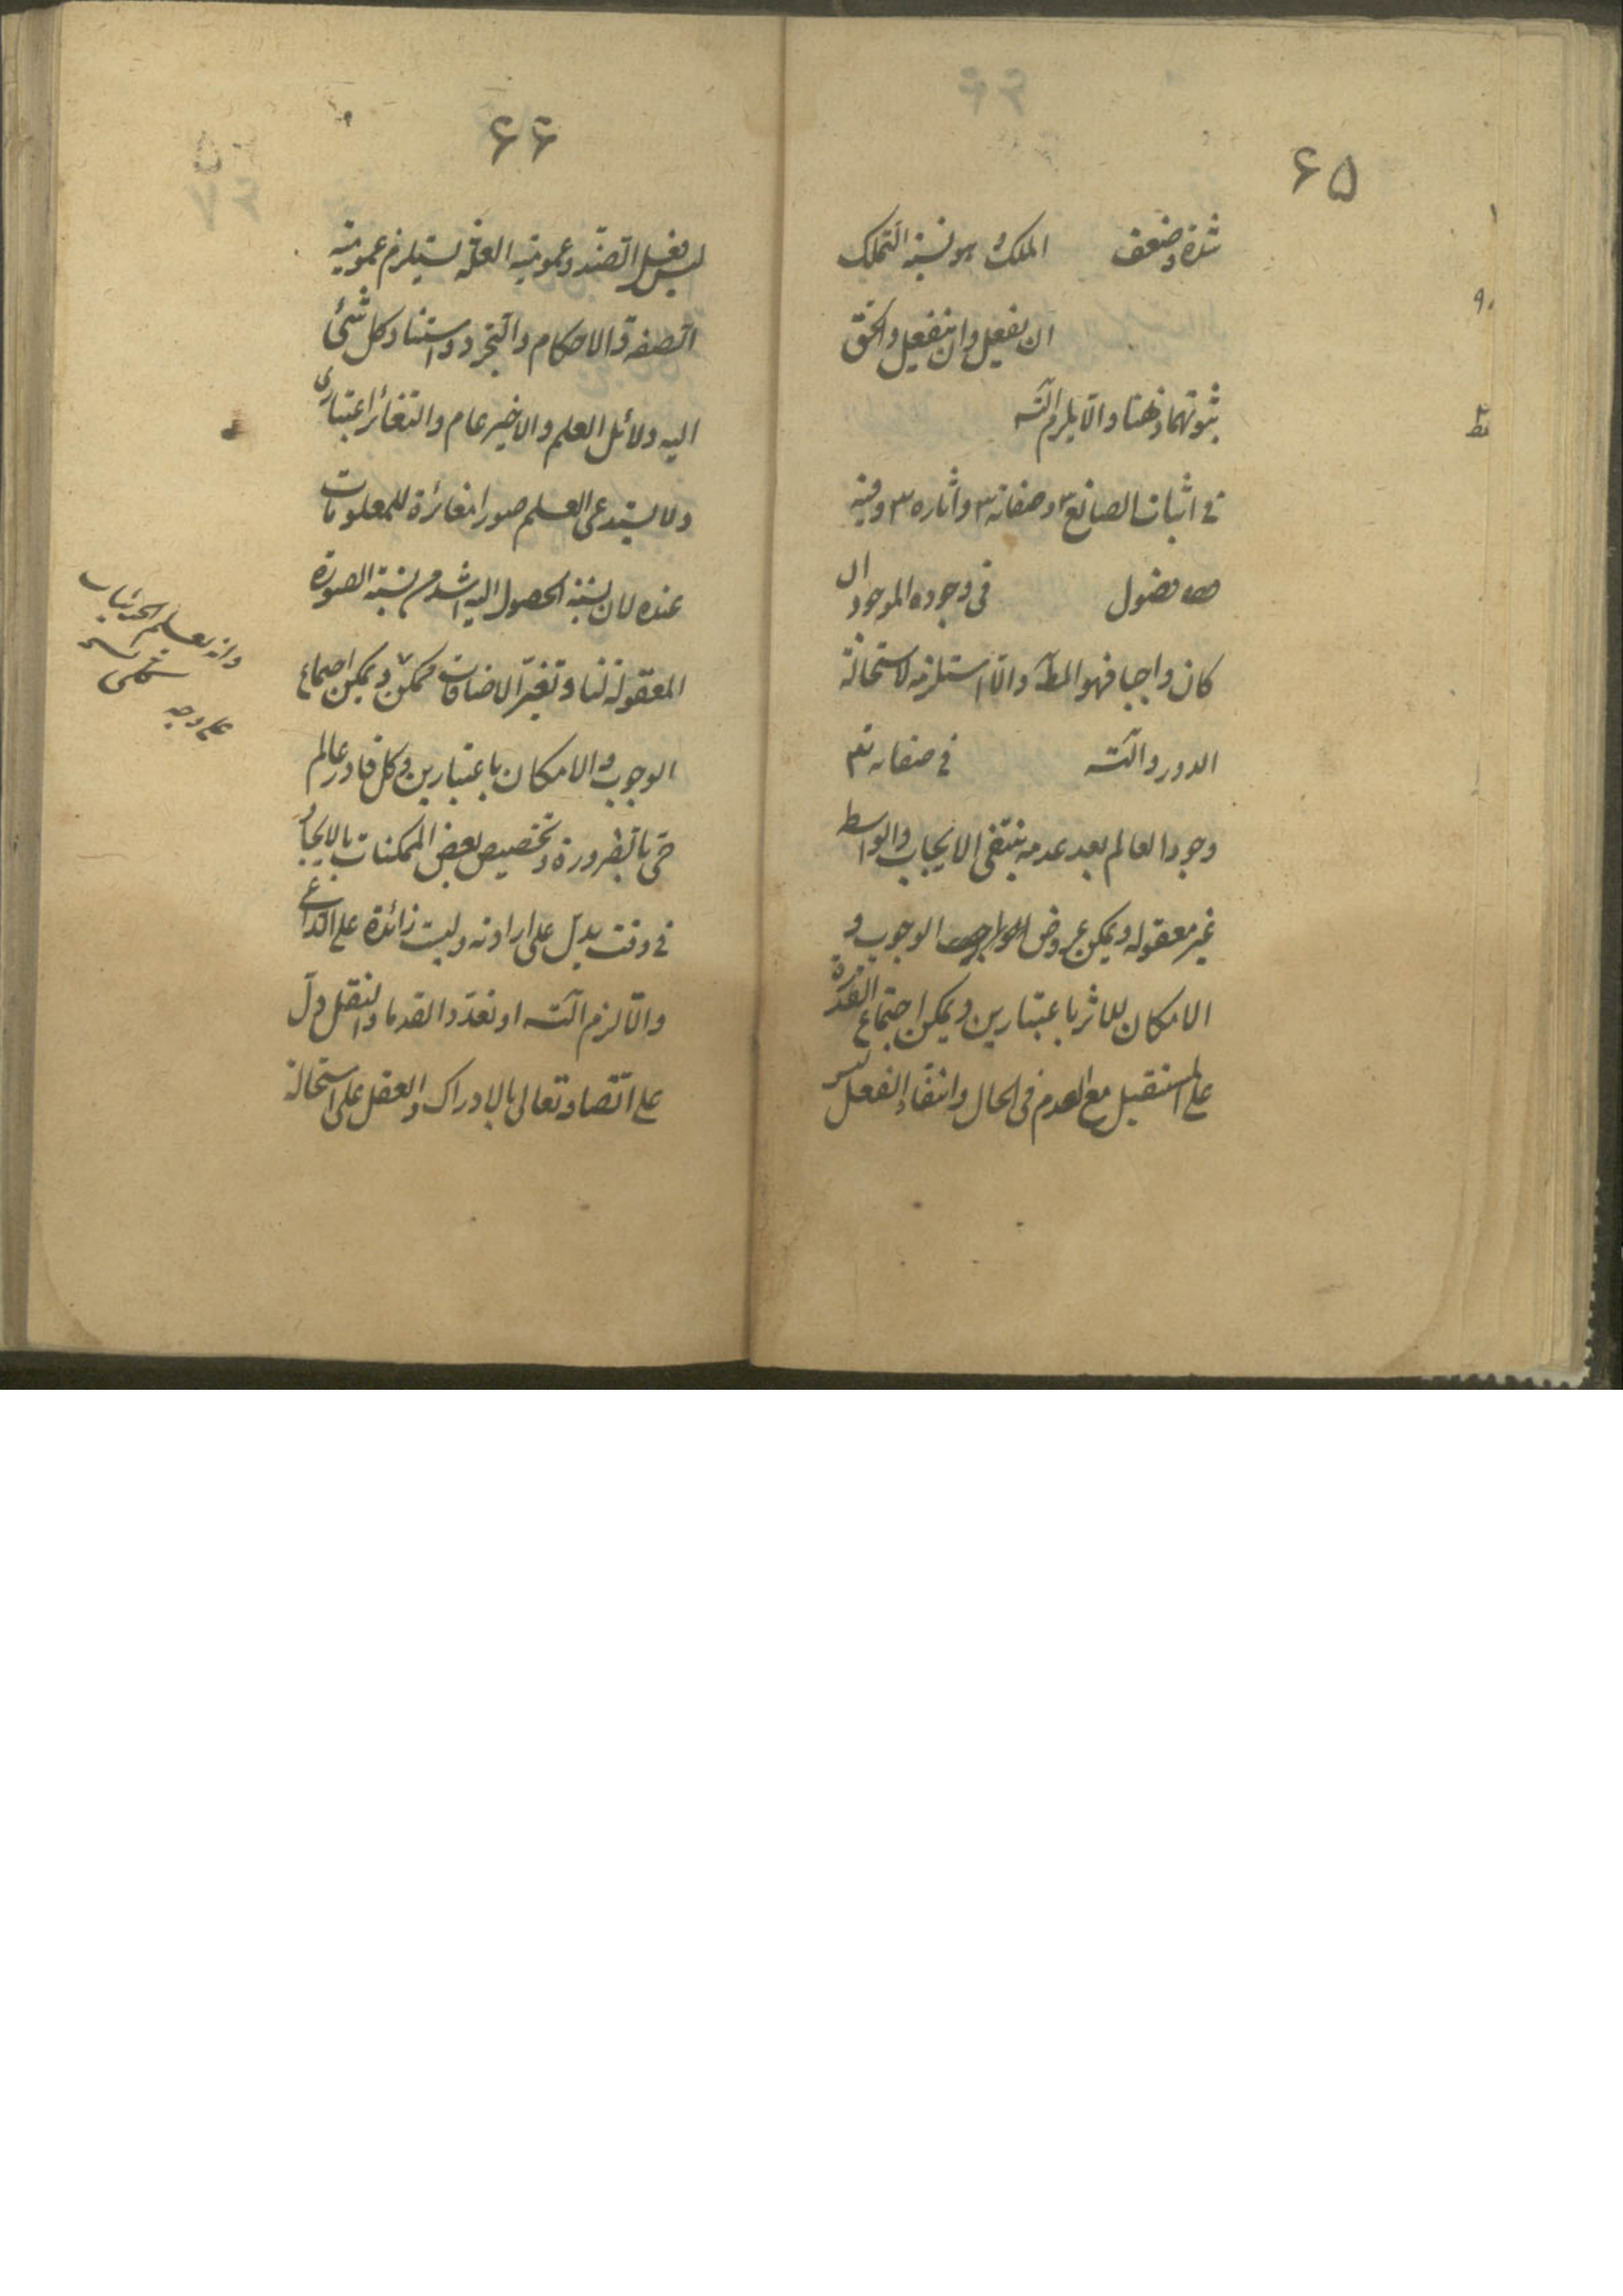 ۶۵
شدة وضعف الملك و هو نسبة التملك
ان يفعل وان ينفعل والحق
ثبوتهما ذهنا والا يلزم التسه
في اثبات الصانع وصفاته واثاره وفيه
فصول في وجوده الموجود ان
كان واجبا فهو المط والا استلزمه لاستحالة
الدور والتسه في صفاته تع
وجود العالم بعد عدمه ينتفى الايجاب والواسطة
غير معقوله ويمكن عروض الوجوب و
الامكان للاثر باعتبارين ويمكن اجتماع القدرة
على المستقبل مع العدم في الحال وانتفاء الفعل ليس
۶۶
ليس بفعل الضد وعمومية العلة يستلزم عمومية
الصفة والاحكام والتجرد واستناد كل شئ
اليه دلائل العلم والاخير عام والتغائر اعتبارى
ولا يستدعى العلم صورا مغائرة للمعلومات
عنده لان نسبة الحصول اليه اشد من نسبة الصورة
المعقولة لنا وتغير الاضافات ممكن ويمكن اجتماع
الوجوب والامكان باعتبارين وكل قادر عالم
حى بالضرورة وتخصيص بعض الممكنات بالايجاد
في وقت يدل على ارادته وليست زائدة على الداعى
والا لزم التسه او تعدد القدما والنقل دل
على اتصافه تعالى بالادراك والعقل على استحالة
وانه يعلم الجزئيات
على وجه